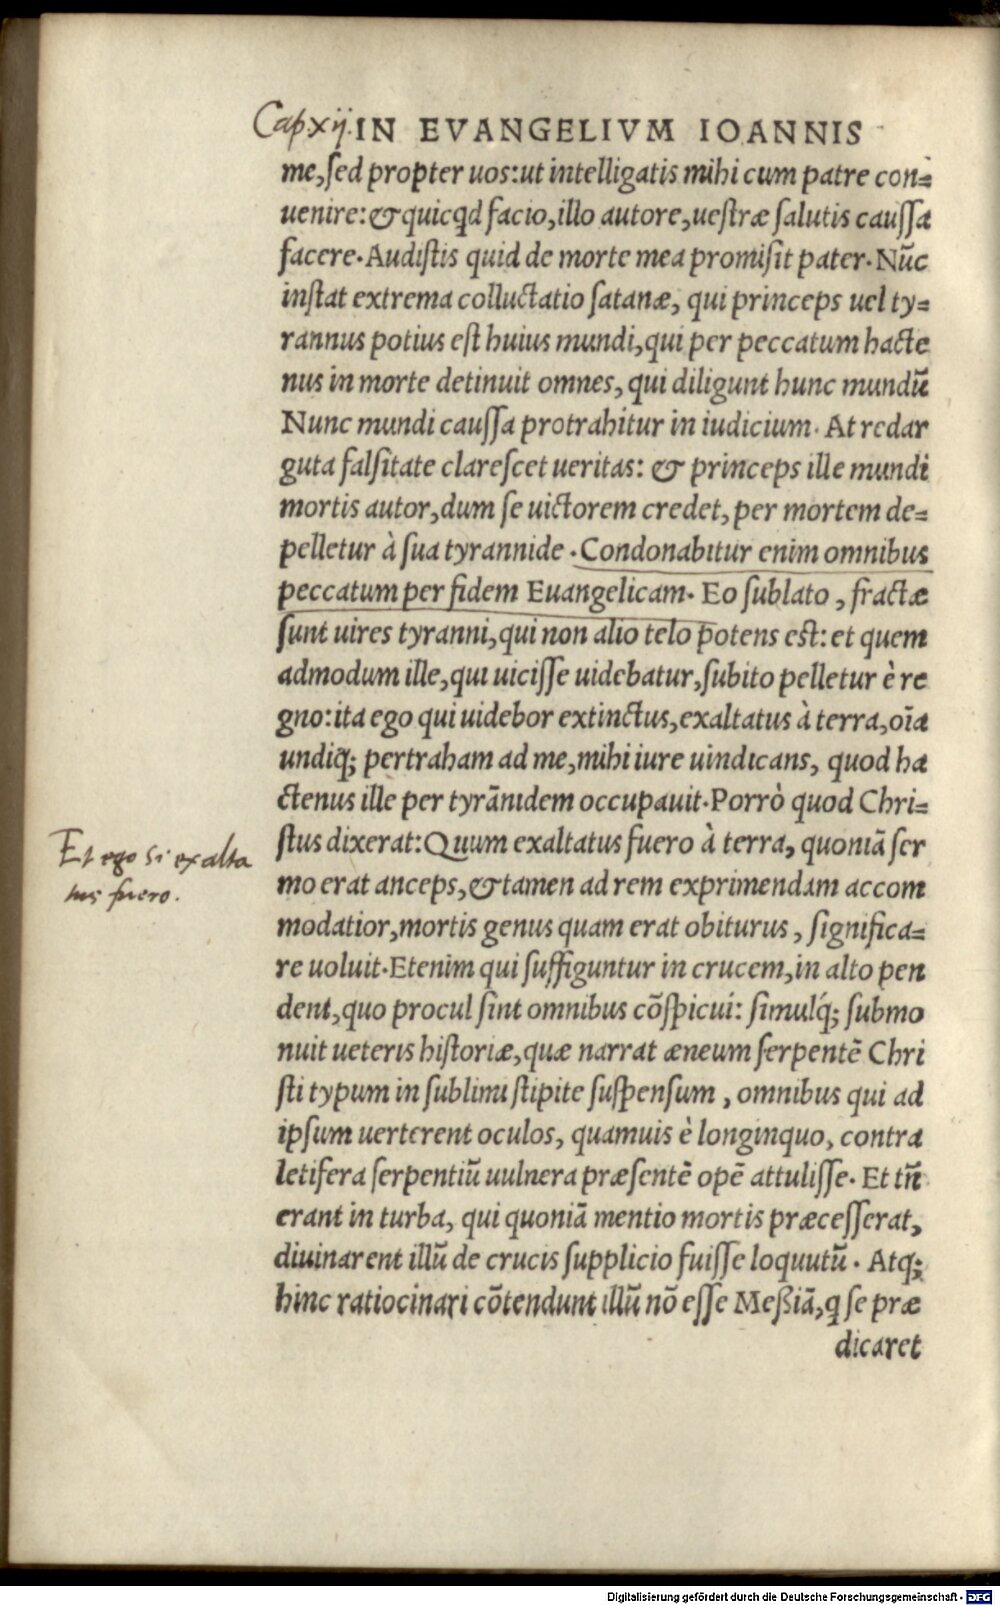 Cap. xij. IN EVANGELIVM IOANNIS
me,ſed propter uos:ut intelligatis mihi cum patre con=
uenire:& quicq̃d facio,illo autore,ueſtræ ſalutis cauſſa
facere. Audiſtis quid de morte mea promiſit pater. Nũc
inſtat extrema colluctatio ſatanæ, qui princeps uel ty=
rannus potius eſt huius mundi,qui per peccatum hacte
nus in morte detinuit omnes, qui diligunt hunc mundũ
Nunc mundi cauſſa protrahitur in iudicium. At redar
guta falſitate clareſcet ueritas: & princeps ille mundi
mortis autor,dum ſe uictorem credet, per mortem de=
pelletur à ſua tyrannide .Condonabitur enim omnibus
peccatum per fidem Euangelicam. Eo ſublato , fractæ
ſunt uires tyranni,qui non alio telo potens eſt: et quem
admodum ille,qui uiciſſe uidebatur,ſubito pelletur è re
gno:ita ego qui uidebor extinctus,exaltatus à terra,oĩa
undiq; pertraham ad me,mihi iure uindicans, quod ha
ctenus ille per tyrãnidem occupauit.Porrò quod Chri=
ſtus dixerat:Quum exaltatus fuero à terra, quoniã ſer
Et ego si exalta
tus fuero.
mo erat anceps,& tamen ad rem exprimendam accom
modatior,mortis genus quam erat obiturus , ſignifica=
re uoluit.Etenim qui ſuffiguntur in crucem,in alto pen
dent,quo procul ſint omnibus cõſpicui: ſimulq́; ſubmo
nuit ueteris hiſtoriæ,quæ narrat æneum ſerpentẽ Chri
ſti typum in ſublimi ſtipite ſuſpenſum , omnibus qui ad
ipſum uerterent oculos, quamuis è longinquo, contra
letifera ſerpentiũ uulnera præſentẽ opẽ attuliſſe. Et tñ
erant in turba, qui quoniã mentio mortis præceſſerat,
diuinarent illũ de crucis ſupplicio fuiſſe loquutũ . Atq;
hinc ratiocinari cõtendunt illũ nõ eſſe Meßiã,q ſe præ
dicaret
Digitalisierung gefördert durch die Deutsche Forschungsgemeinschaft - DFG